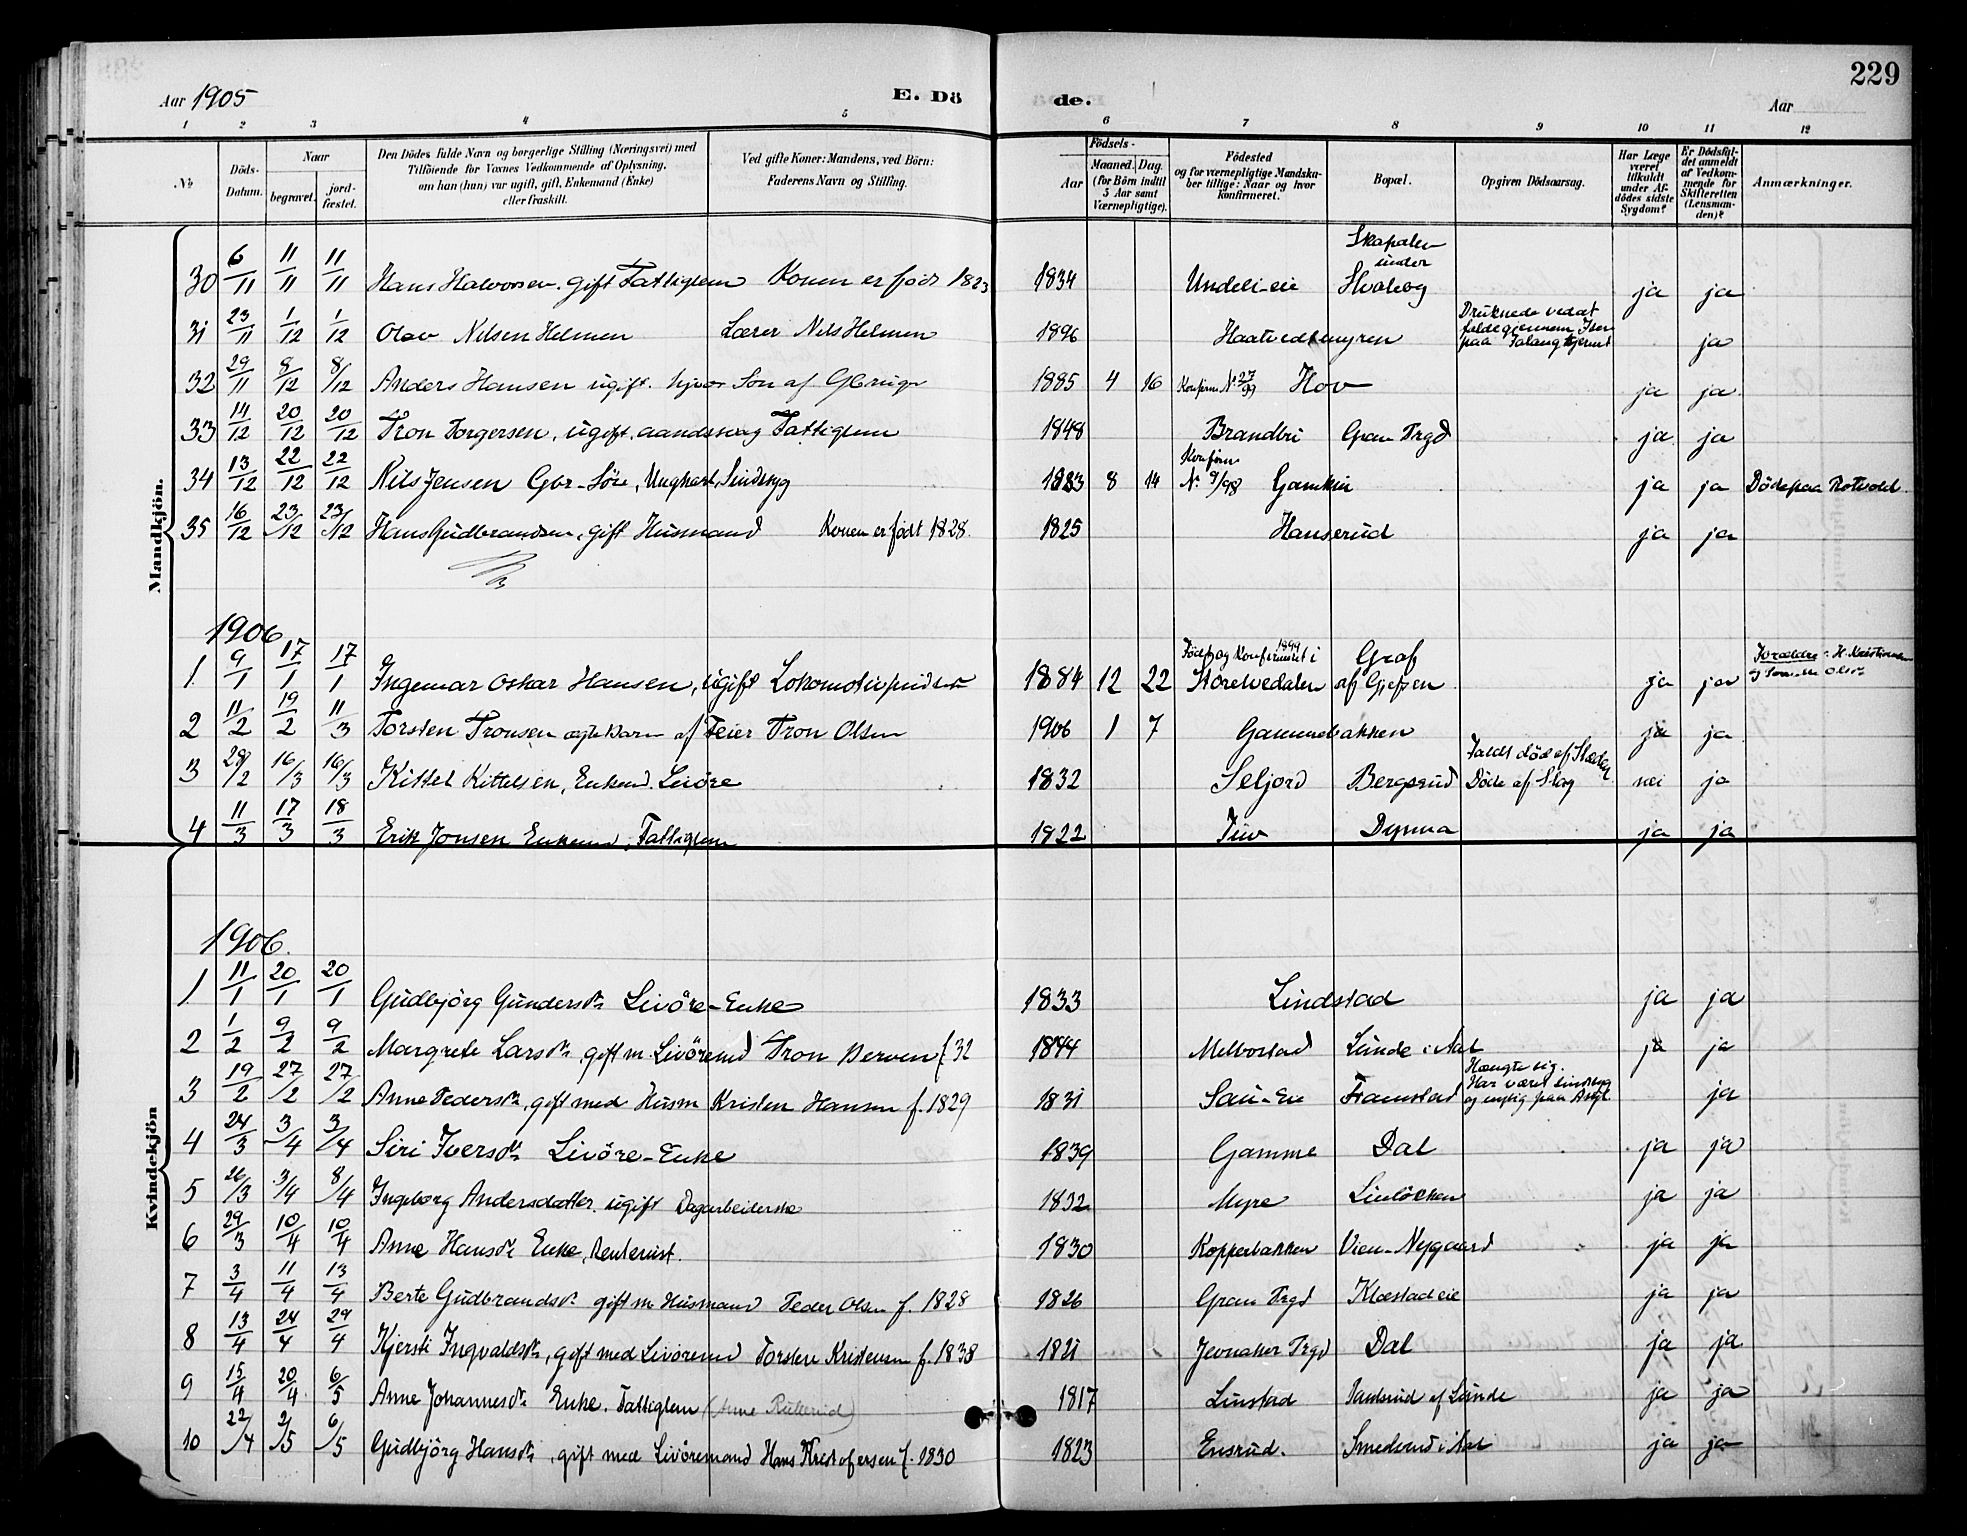 229
Aar 1905
E. Dö
de.
Aar
1 2 3 4 5 6 7 8 9 10 11 12
№
Döds-Datum.
Naar
begravet. jord-fæstet.
Den Dödes fulde Navn og borgerlige Stilling (Næringsvei) med
Tilföiende for Voxnes Vedkommende af Oplysning,
om han (hun) var ugift, gift, Enkemand (Enke)
eller fraskilt.
Ved gifte Koner: Mandens, ved Börn:
Faderens Navn og Stilling.
Födsels-
Aar
Maaned. Dag.
(for Börn indtil
5 Aar samt
Værnepligtige).
Födested
og for værnepligtige Mandska-
ber tillige: Naar og hvor
konfirmeret.
Bopæl.
Opgiven Dödsaarsag.
Har Læge
været
tilkaldt
under Af-
dödes sidste
Sygdom?
Er Dödsfal-
det anmeldt
af Vedkom-
mende for
Skifteretten
(Lensman-
den)?
Anmærkninger.
Mandkjön.
30 6/11 11/11 11/11 Hans Halvorsen. gift Fattiglem Konen er født 1823 1834 Undeli-eie Skapalen under Hvaleby ja ja
31 23/11 1/12 1/12 Olav Nilsen Helmen Lærer Nils Helmen 1896 Haatvedtmyren Druknede ved at falde gjennem Isen paa ja
32 29/11 8/12 8/12 Anders Hansen ugift. Søn af Gbruger 1885 4 16 Konfirm. № 27/99 Hov ja ja
33 14/12 20/12 20/12 Tron Torgersen, ugift, aandssvag Fattiglem 1848 Brandbu Gran Prgd ja ja
34 13/12 22/12 22/12 Nils Jensen Gbr-Søn, Ungkarl, Sindssyg 1883 8 14 Konfirm № 9/98 Gamkin ja ja Døde paa Rotvold.
35 16/12 23/12 23/12 Hans Gudbrandsen, gift Husmand Konen er født 1828. 1825 Hanserud ja ja
1906
1 9/1 17/1 17/1 Ingemar Oskar Hansen, ugift Lokomotivpudser 1884 12 22 Født og Konfirmeret 1899 i Storelvedalen Graf af Gjefsen ja ja Forældre: H. Kristiansen
2 11/2 19/2 11/3 Torsten Tronsen ægte Barn af Feier Tron Olsen 1906 1 7 Gammebakken ja ja
3 28/2 16/3 16/3 Kittel Kittelsen, Enkem. Livøre 1832 Seljord Bergsrud Faldt død af Slæden. Døde af Slag nei ja
4 11/3 17/3 18/3 Erik Jonsen Enkem, Fattiglem 1822 Tuv Dynna ja ja
Kvindekjön
1906.
1 11/1 20/1 20/1 Gudbjörg Gundersdtr Livøre-Enke 1833 Lindstad ja ja
2 1/2 9/2 9/2 Margrete Larsdtr gift m Livøremd Tron Berven f. 32 1844 Melbostad Lunde i Aal ja ja
3 19/2 27/2 27/2 Anne Pedersdtr, gift med Husm Kristen Hansen f. 1829 1831 Sau-Eie Framstad Hængte sig. Har været sindssyg og paa Asyl. ja
4 24/3 3/4 3/4 Siri Iversdtr Livøre-Enke 1839 Gamme Dal ja ja
5 26/3 3/4 8/4 Ingeborg Andersdatter. ugift Dagarbeiderske 1832 Myre Linløkken ja ja
6 29/3 10/4 10/4 Anne Hansdtr Enke, Rentenist. 1830 Kopperbakken Vien-Nygaard ja ja
7 3/4 11/4 13/4 Berte Gudbrandsdtr gift m Husmand Peder Olsen f. 1828 1826 Gran Prgd Klæstadeie ja ja
8 13/4 24/4 29/4 Kjersti Ingvaldsdtr, gift med Livøremd Torsten Kristensen f. 1838 1821 Jevnaker Prgd Dal ja ja
9 15/4 20/4 6/5 Anne Johannesdtr Enke. Fattiglem (Anne Rukerud) 1817 Linstad Sandsrud af Lunde ja ja
10 22/4 2/5 6/5 Gudbjörg Hansdtr, gift med Livøremand Hans Kristofersen f. 1830 1823 Ensrud. Smedsrud i Aal ja ja